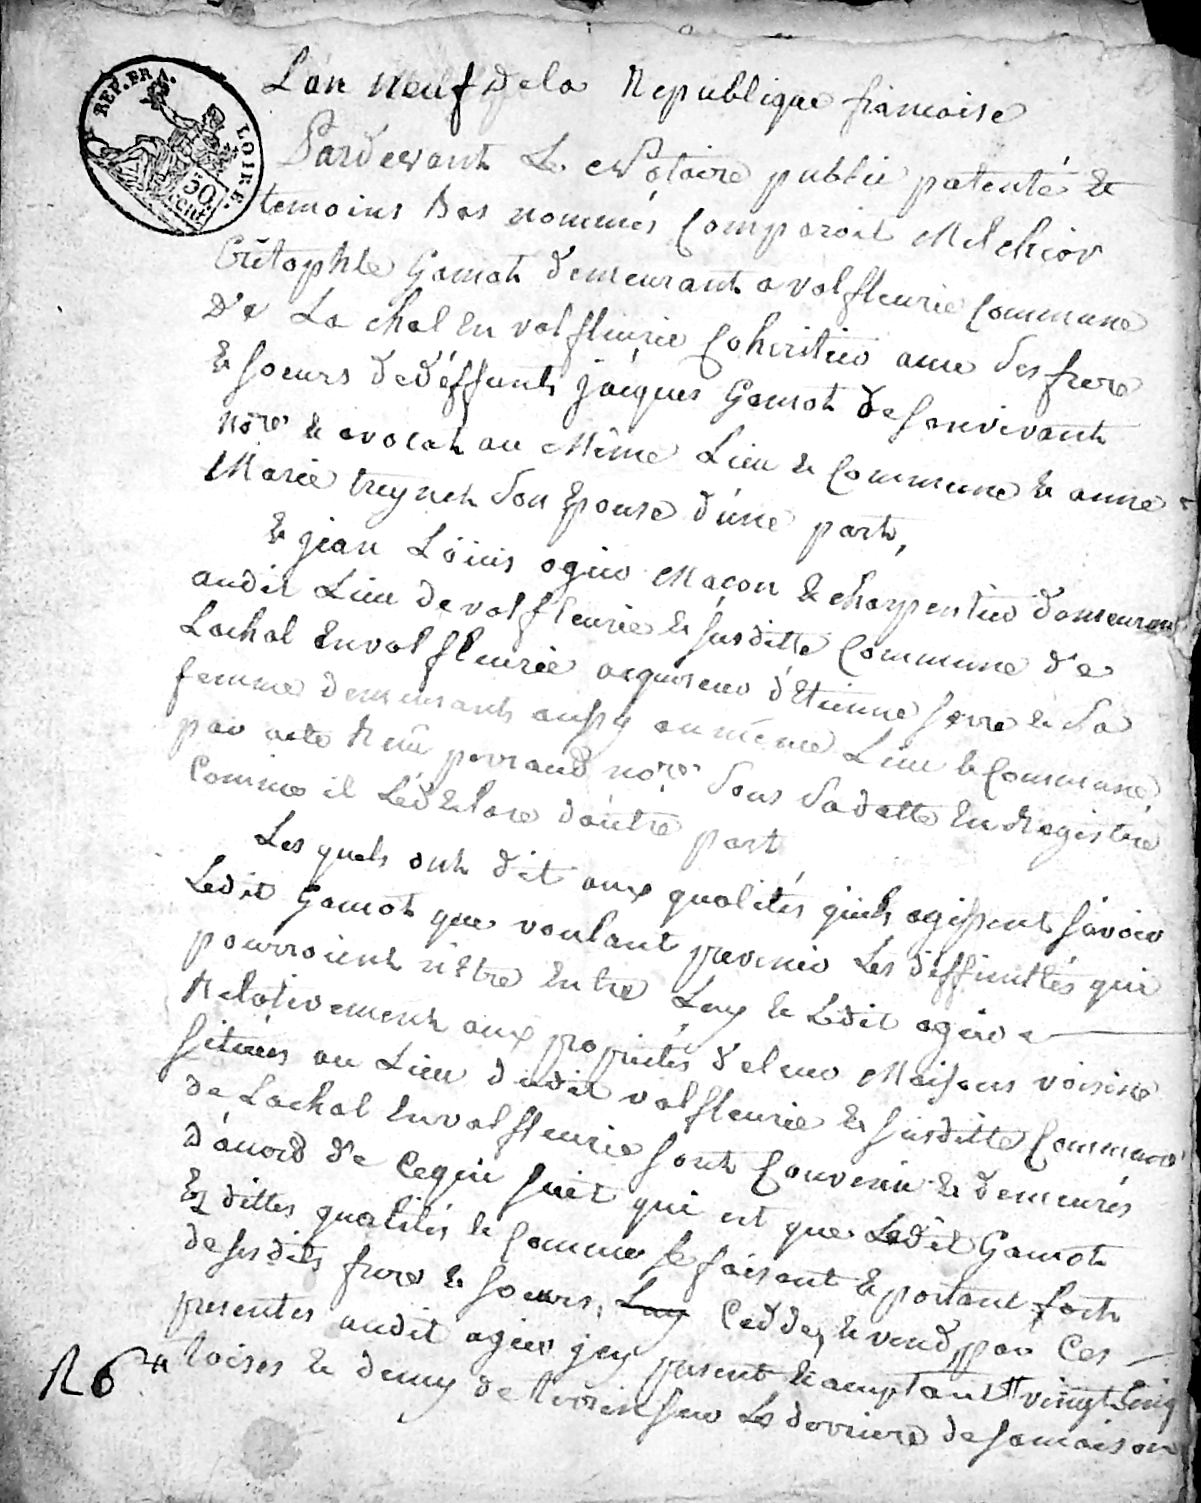 REP. FRA.
LOIRE.
50
cent
L'an neuf de la Republique francoise
Pardevant Le Notaire public patenté &
temoins bas nommés Comparoit Melchior
Critophle Gamot demeurant a valfleurie Commune
de La chal en valfleurie Coheritier avec Ses frere
& Soeurs de déffunts jacques Gamot de Sonvivant
no.re & avocat au Même Lieu & Commune & anne
Marie treynet Son Epouse d'une part,
& jean Loüis ogier Maçon & charpentier demeurant
audit Lieu de valfleurie & Susditte Commune de
Lachal En valfleurie acquereur d'Etienne Serre & Sa
femme demeurants aussy au même Lieu & Commune,
par acte Reçu perraud no.re Sous Sa datte En Registré
Comme il Le déclare d'autre part
Les quels ont dit aux qualités qu'ils agissent Sàvoir
Ledit Gamot que voulant prevenir Les difficultés qui
pourroient n'Etre Entre Luy & Ledit ogier
Relativement aux proprietés de leur Maisons voisine
Situées au Lieu dudit valfleurie & Susditte Commune
de Lachal En valfleurie Sont Convenu & demeurés
d'acord de Cequi Suit qui est que Ledit Gamot
Ez dittes qualités & Comme Se faisant & portant fort
de Ses dits frere & Soeurs, Luy Cedde, & vend, par Ces
presentes audit ogier jcy present & acceptant vingt Cinq
toises & demy de terrein Sur Le derriere de Samaison
R 6